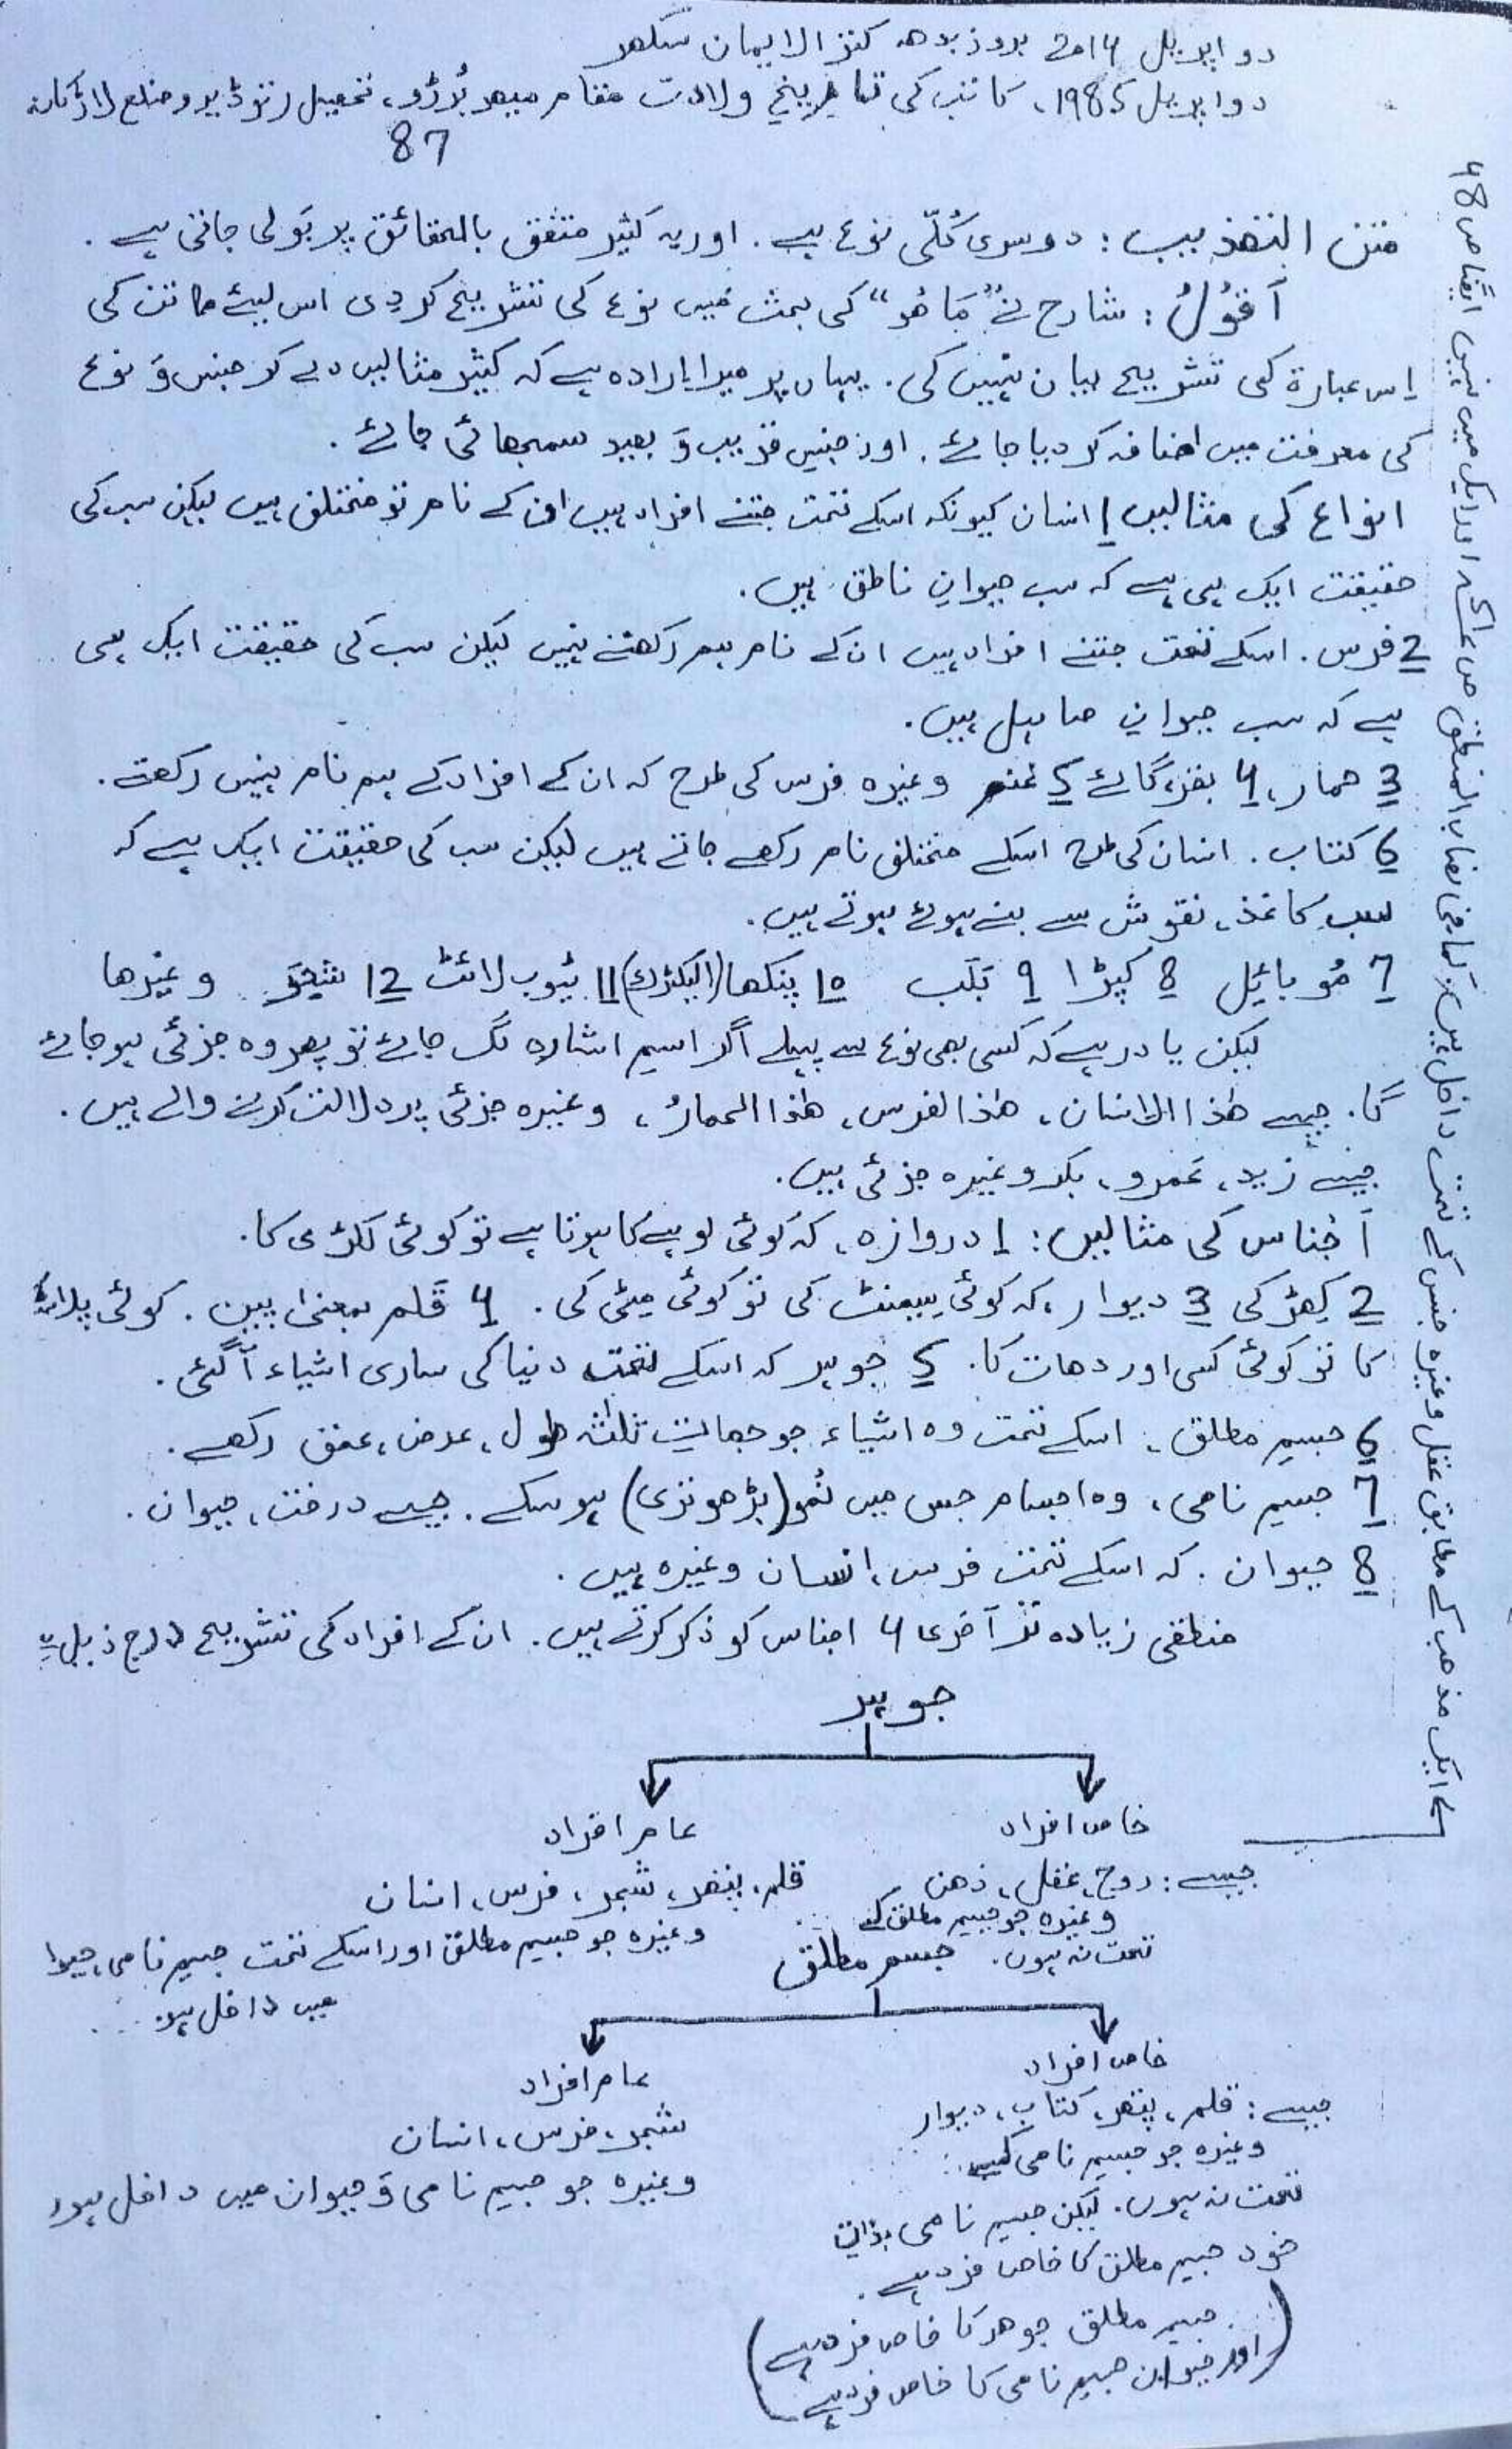 دو اپریل 2014 بروز بدھ کنز الایمان سکھر
دو اپریل 1985، کاتب کی تاریخ ولادت مقام میھر بُرڑو، تحصیل رتوڈیرو ضلع لاڑکانہ
87
متن التھذیب: دوسری کُلّی نوع ہے. اور یہ کثیر متفق بالحقائق پر بَولی جاتی ہے.
أقُوْلُ: شارح نے "مَا ھُو" کی بحث میں نوع کی تشریح کردی اس لیئے ماتن کی
اِس عبارۃ کی تشریح بیان نہیں کی. یہاں پر میرا ارادہ ہے کہ کثیر مثالیں دے کر جنس وَ نوع
کی معرفت میں اضافہ کر دیا جائے. اور جنسِ قریب وَ بعید سمجھائی جائے.
انواع کی مثالیں 1 انسان کیونکہ اسکے تحت جتنے افراد ہیں ان کے نام تو مختلف ہیں لیکن سب کی
حقیقت ایک ہی ہے کہ سب حیوانِ ناطق ہیں.
2 فرس. اسکے تحت جتنے افراد ہیں ان کے نام ہم رکھتے نہیں لیکن سب کی حقیقت ایک ہی
ہے کہ سب حیوانِ صاہل ہیں.
3 حمار، 4 بقر، گائے 5 غنم وغیرہ فرس کی طرح کہ ان کے افراد کے ہم نام نہیں رکھتے.
6 کتاب. انسان کی طرح اسکے مختلف نام رکھے جاتے ہیں لیکن سب کی حقیقت ایک ہے کہ
سب کاغذ، نقوش سے بنے ہوئے ہوتے ہیں.
7 مُوبائیل 8 کپڑا 9 بَلَب 10 پنکھا (الیکٹرک) 11 ٹیوب لائٹ 12 شجَر وغیرھا
لیکن یاد رہے کہ کسی بھی نوع سے پہلے اگر اسمِ اشارہ لگ جائے تو پھر وہ جزئی ہو جائے
گا. جیسے ھٰذا الانسان، ھٰذا الفرس، ھٰذا الحمارُ، وغیرہ جزئی پر دلالت کرنے والے ہیں.
جیسے زید، عَمرو، بکر وغیرہ جزئی ہیں.
أجناس کی مثالیں: 1 دروازہ، کہ کوئی لوہے کا ہوتا ہے تو کوئی لکڑی کا.
2 کِھڑکی 3 دیوار، کہ کوئی سیمنٹ کی تو کوئی مٹی کی. 4 قَلم بمعنی پین. کوئی پلاسٹک
کا تو کوئی کسی اور دھات کا. 5 جوہر کہ اسکے تحت دنیا کی ساری اشیاء آگئی.
6 جسمِ مطلق، اسکے تحت وہ اشیاء جو جھاتِ ثلٰثہ طول، عرض، عمق رکھے.
7 جسمِ نامی، وہ اجسام جس میں نُمو (بڑھوتری) ہوسکے. جیسے درخت، حیوان.
8 حیوان. کہ اسکے تحت فرس، انسان وغیرہ ہیں.
منطقی زیادہ تر آخری 4 اجناس کو ذکر کرتے ہیں. ان کے افراد کی تشریح درج ذیل ہے
جوہر
خاص افراد
جیسے: روح، عقل، ذھن
وغیرہ جو جسمِ مطلق کے
تحت نہ ہوں.
عام افراد
قلم، پتھر، شجر، فرس، انسان
وغیرہ جو جسمِ مطلق اور اسکے تحت جسمِ نامی، حیوا
میں داخل ہو
جسم مطلق
خاص افراد
جیسے: قلم، پتھر، کتاب، دیوار
وغیرہ جو جسمِ نامی کے
تحت نہ ہوں. لیکن جسمِ نامی بذاتِ
خود جسمِ مطلق کا خاص فرد ہے.
(جسمِ مطلق جوھر کا خاص فرد ہے
اور حیوان جسمِ نامی کا خاص فرد ہے)
عام افراد
شجر، فرس، انسان
وغیرہ جو جسمِ نامی وَ حیوان میں داخل ہوں
1ے ایک مذھب کے مطابق عقل وغیرہ جنس کے تحت داخل ہیں، کما فی نصاب المنطق ص اور ایک میں نہیں ایضًا ص 48